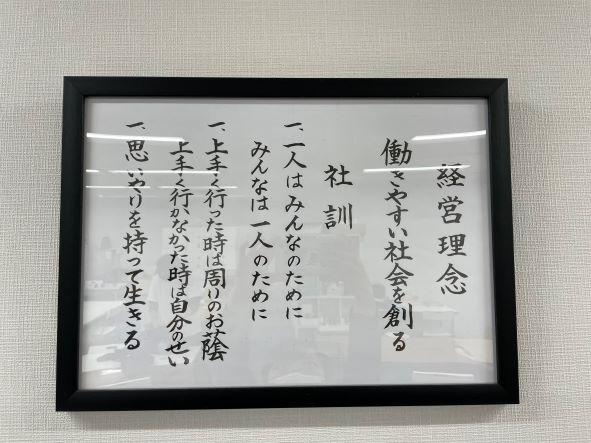 経営理念
働きやすい社会を創る
社訓
一、一人はみんなのために
みんなは一人のために
一、上手く行った時は周りのお蔭
上手く行かなかった時は自分のせい
一、思いやりを持って生きる